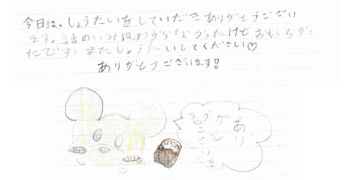 今日は、しょうたいをしていだきありがとうござい
ます。話のいみはわからなかったけどおもしろかっ
たです。またしょうたいしてください♡
ありがとうございます!
あり
がとう
ございます